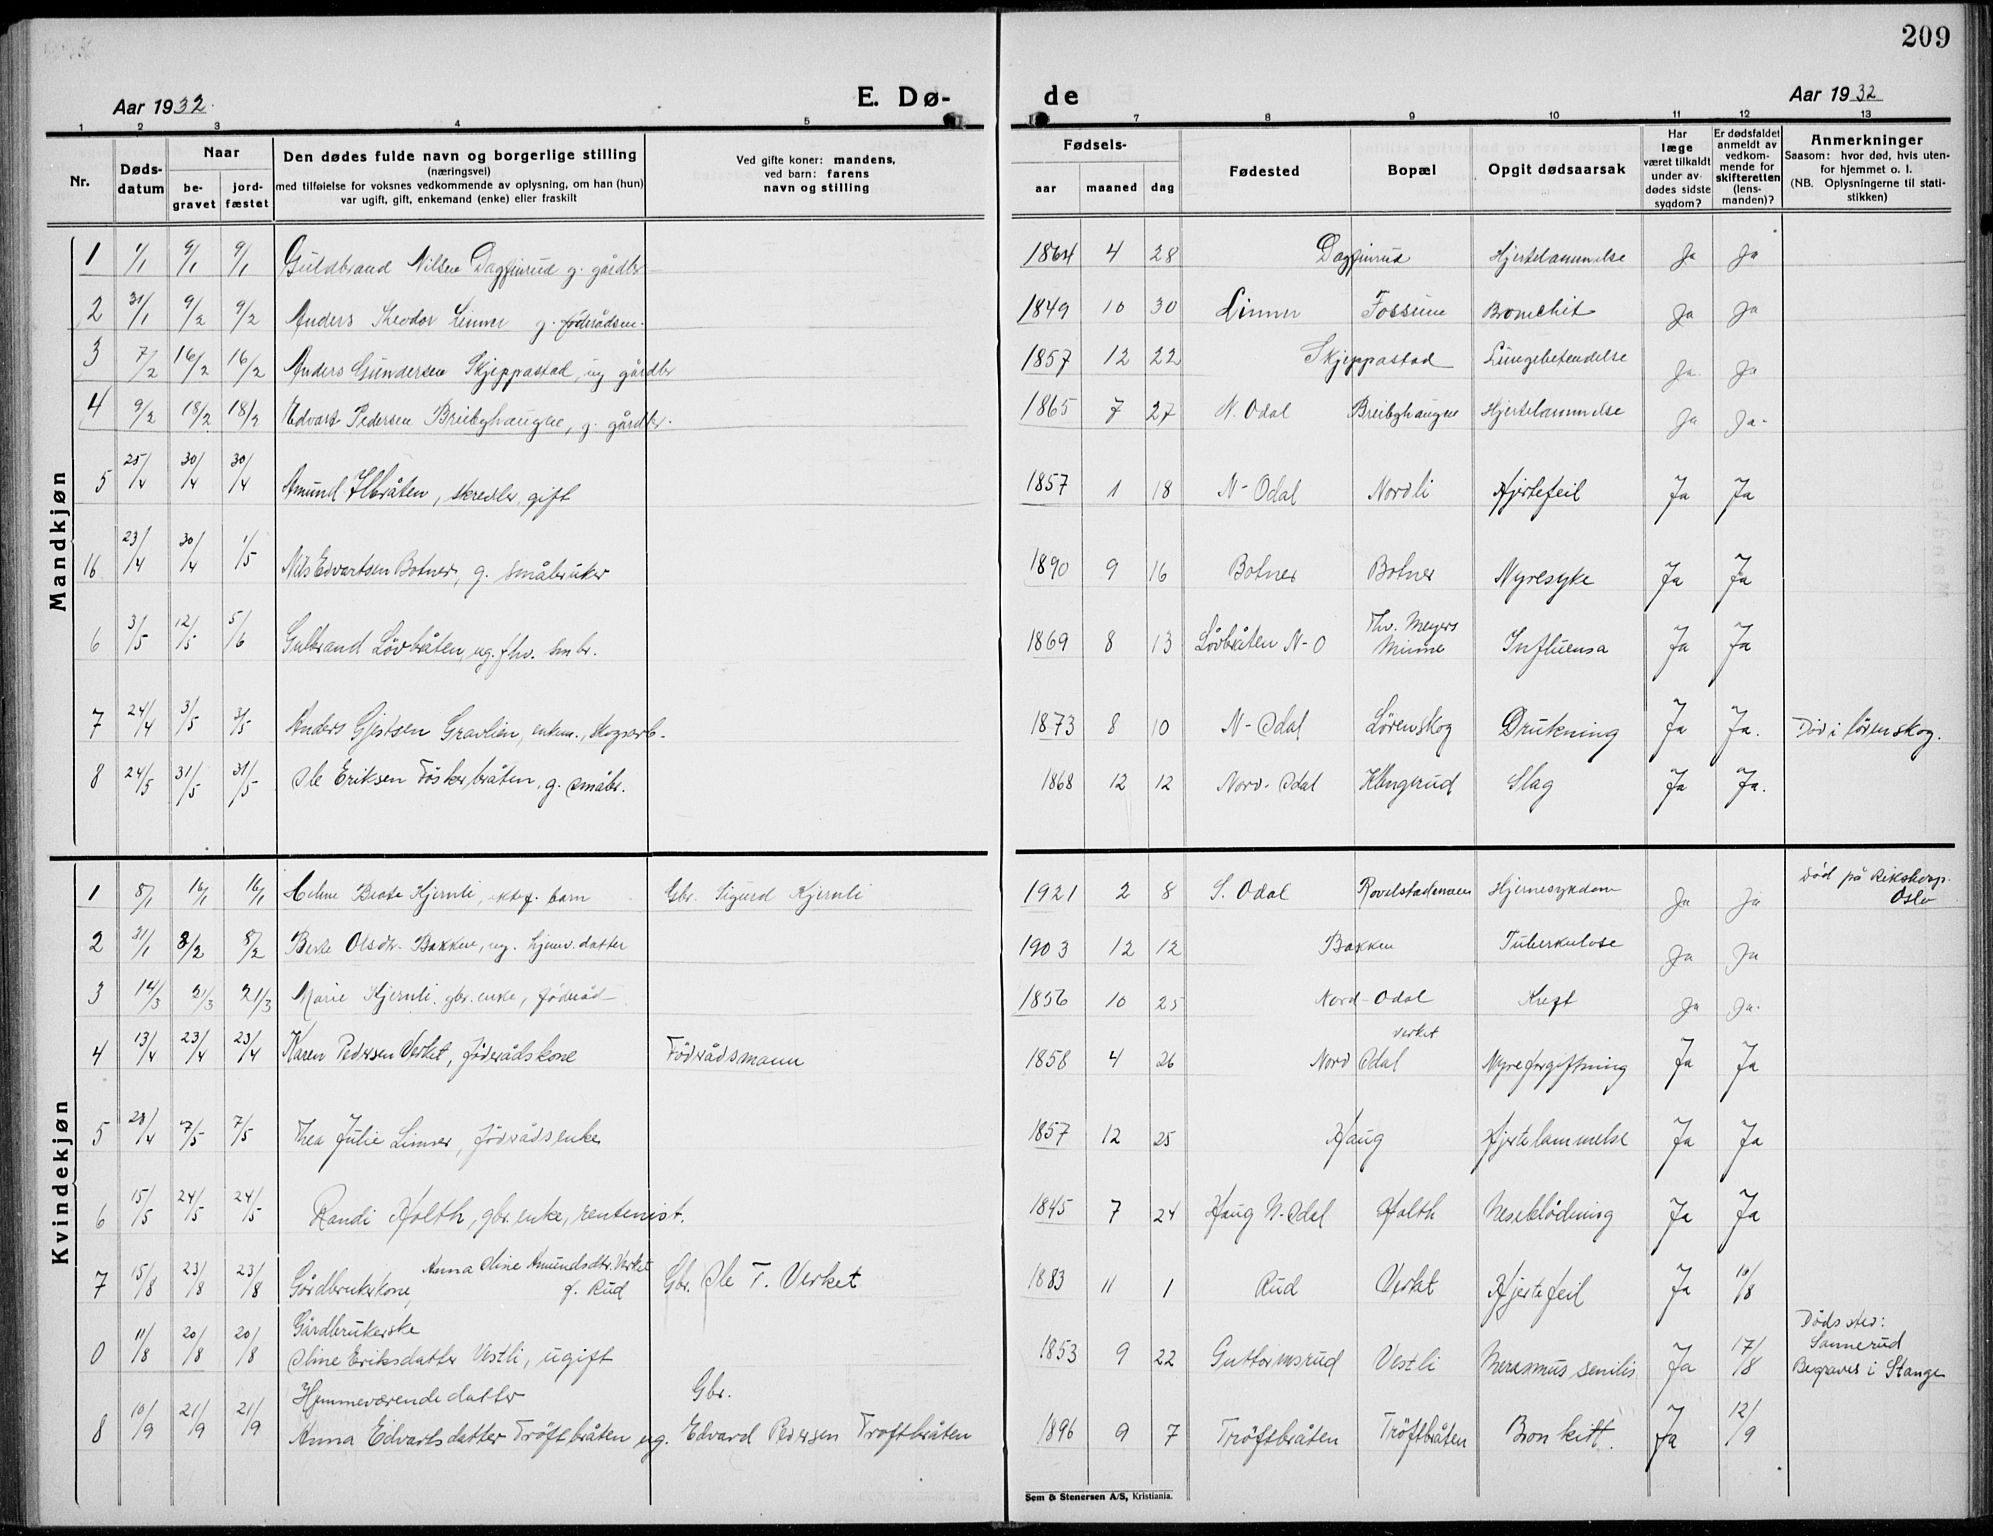 209
Aar 1932.
E. Dø-
de
Aar 1932
1 2 3 4 5 7 8 9 10 11 12 13
Nr.
Døds-
datum
Naar
be-
gravet
jord-
fæstet
Den dødes fulde navn og borgerlige stilling
(næringsvei)
med tilføielse for voksnes vedkommende av oplysning, om han (hun)
var ugift, gift, enkemand (enke) eller fraskilt
Ved gifte koner: mandens,
ved barn: farens
navn og stilling
Fødsels-
aar maaned dag
Fødested
Bopæl
Opgit dødsaarsak
Har
læge
været tilkaldt
under av-
dødes sidste
sygdom?
Er dødsfaldet
anmeldt av
vedkom-
mende for
skifteretten
(lens-
manden)?
Anmerkninger
Saasom: hvor død, hvis uten-
for hjemmet o. l.
(NB. Oplysningerne til stati-
stikken)
Mandkjøn
1 1/1 9/1 9/1 Guldbrand Nilsen Dagfinrud g. gårdbr 1864 4 28 Dagfinrud Hjertelammelse Ja Ja
2 31/1 9/2 9/2 Anders Theodor Linner g. föderådsm. 1849 10 30 Linner Fossum Bronchit Ja Ja
3 7/2 16/2 16/2 Anders Gundersen Skjeppastad, ug gårdbr 1857 12 22 Skjeppastad Lungebetendelse Ja Ja
4 9/2 18/2 18/2 Edvart Pedersen Breibyhaugne, g. gårdbr. 1865 7 27 N. Odal Breibyhaugne Hjertelammelse Ja Ja.
5 25/4 30/4 30/4 Amund Ilbråten, skredder, gift 1857 1 18 N-Odal Nordli Hjertefeil Ja Ja
16 23/4 30/4 1/5 Nils Edvartsen Botner, g. småbruker 1890 9 16 Botner Botner Nyresyke Ja Ja
6 3/5 12/5 5/6 Gulbrand Lövbråten, ug. fhv. smbr. 1869 8 13 Lövbråten N-O Thv. Meyers
Minne Influensa Ja Ja
7 24/4 3/5 3/5 Anders Gjestsen Gravlien, enkm., skogsarb. 1873 8 10 N-Odal Lörenskog Drukning Ja Ja. Död i Lörenskog.
8 24/5 31/5 31/5 Ole Eriksen Föskerbråten, g. småbr. 1868 12 12 Nord-Odal Klingerud Slag Ja Ja.
Kvindekjøn
1 8/1 16/1 16/1 Helene Beate Kjernli, barn Gbr. Sigurd Kjernli 1921 2 8 S. Odal Hjernesykdom Ja Ja Död på Rikshosp.
Oslo
2 31/1 8/2 8/2 Berte Olsdtr. Bakken, ug. hjemv. datter 1903 12 12 Bakken Tuberkulose Ja Ja
3 14/3 21/3 21/3 Marie Kjernli. gbr. enke, föderåd 1856 10 25 Nord-Odal Kreft Ja Ja.
4 13/4 23/4 23/4 Karen Pedersen Verket, föderådskone Föderådsmann 1858 4 26 Nord Odal Verket Nyreforgiftning Ja Ja
5 28/4 7/5 7/5 Thea Julie Linner, föderådsenke 1857 12 25 Haug Hjertelammelse Ja Ja
6 15/5 24/5 24/5 Randi Holth, gbr. enke, rentenist. 1845 7 24 Haug N-Odal Holth Neseblödning Ja Ja
7 15/8 23/8 23/8 Gårdbrukerkone, Anna Oline Amundsdtr. Verket
f. Rud Gbr. Ole T. Verket 1883 11 1 Rud Verket Hjertefeil Ja 16/8
0 11/8 20/8 20/8 Gårdbrukerske
Oline Eriksdatter Vestli, ugift 1853 9 22 Guttormsrud Vestli Merasmus senilis Ja 17/8 Dödssted:
Sannerud
Begraves i Stange
8 10/9 21/9 21/9 Hjemmeværende datter
Anna Edvartsdatter Tröftbråten ug. Gbr.
Edvard Pedersen Tröftbråten 1896 9 7 Tröftbråten Tröftbråten Bronkitt. Ja 12/9
Sem & Stenersen A/S, Kristiania.